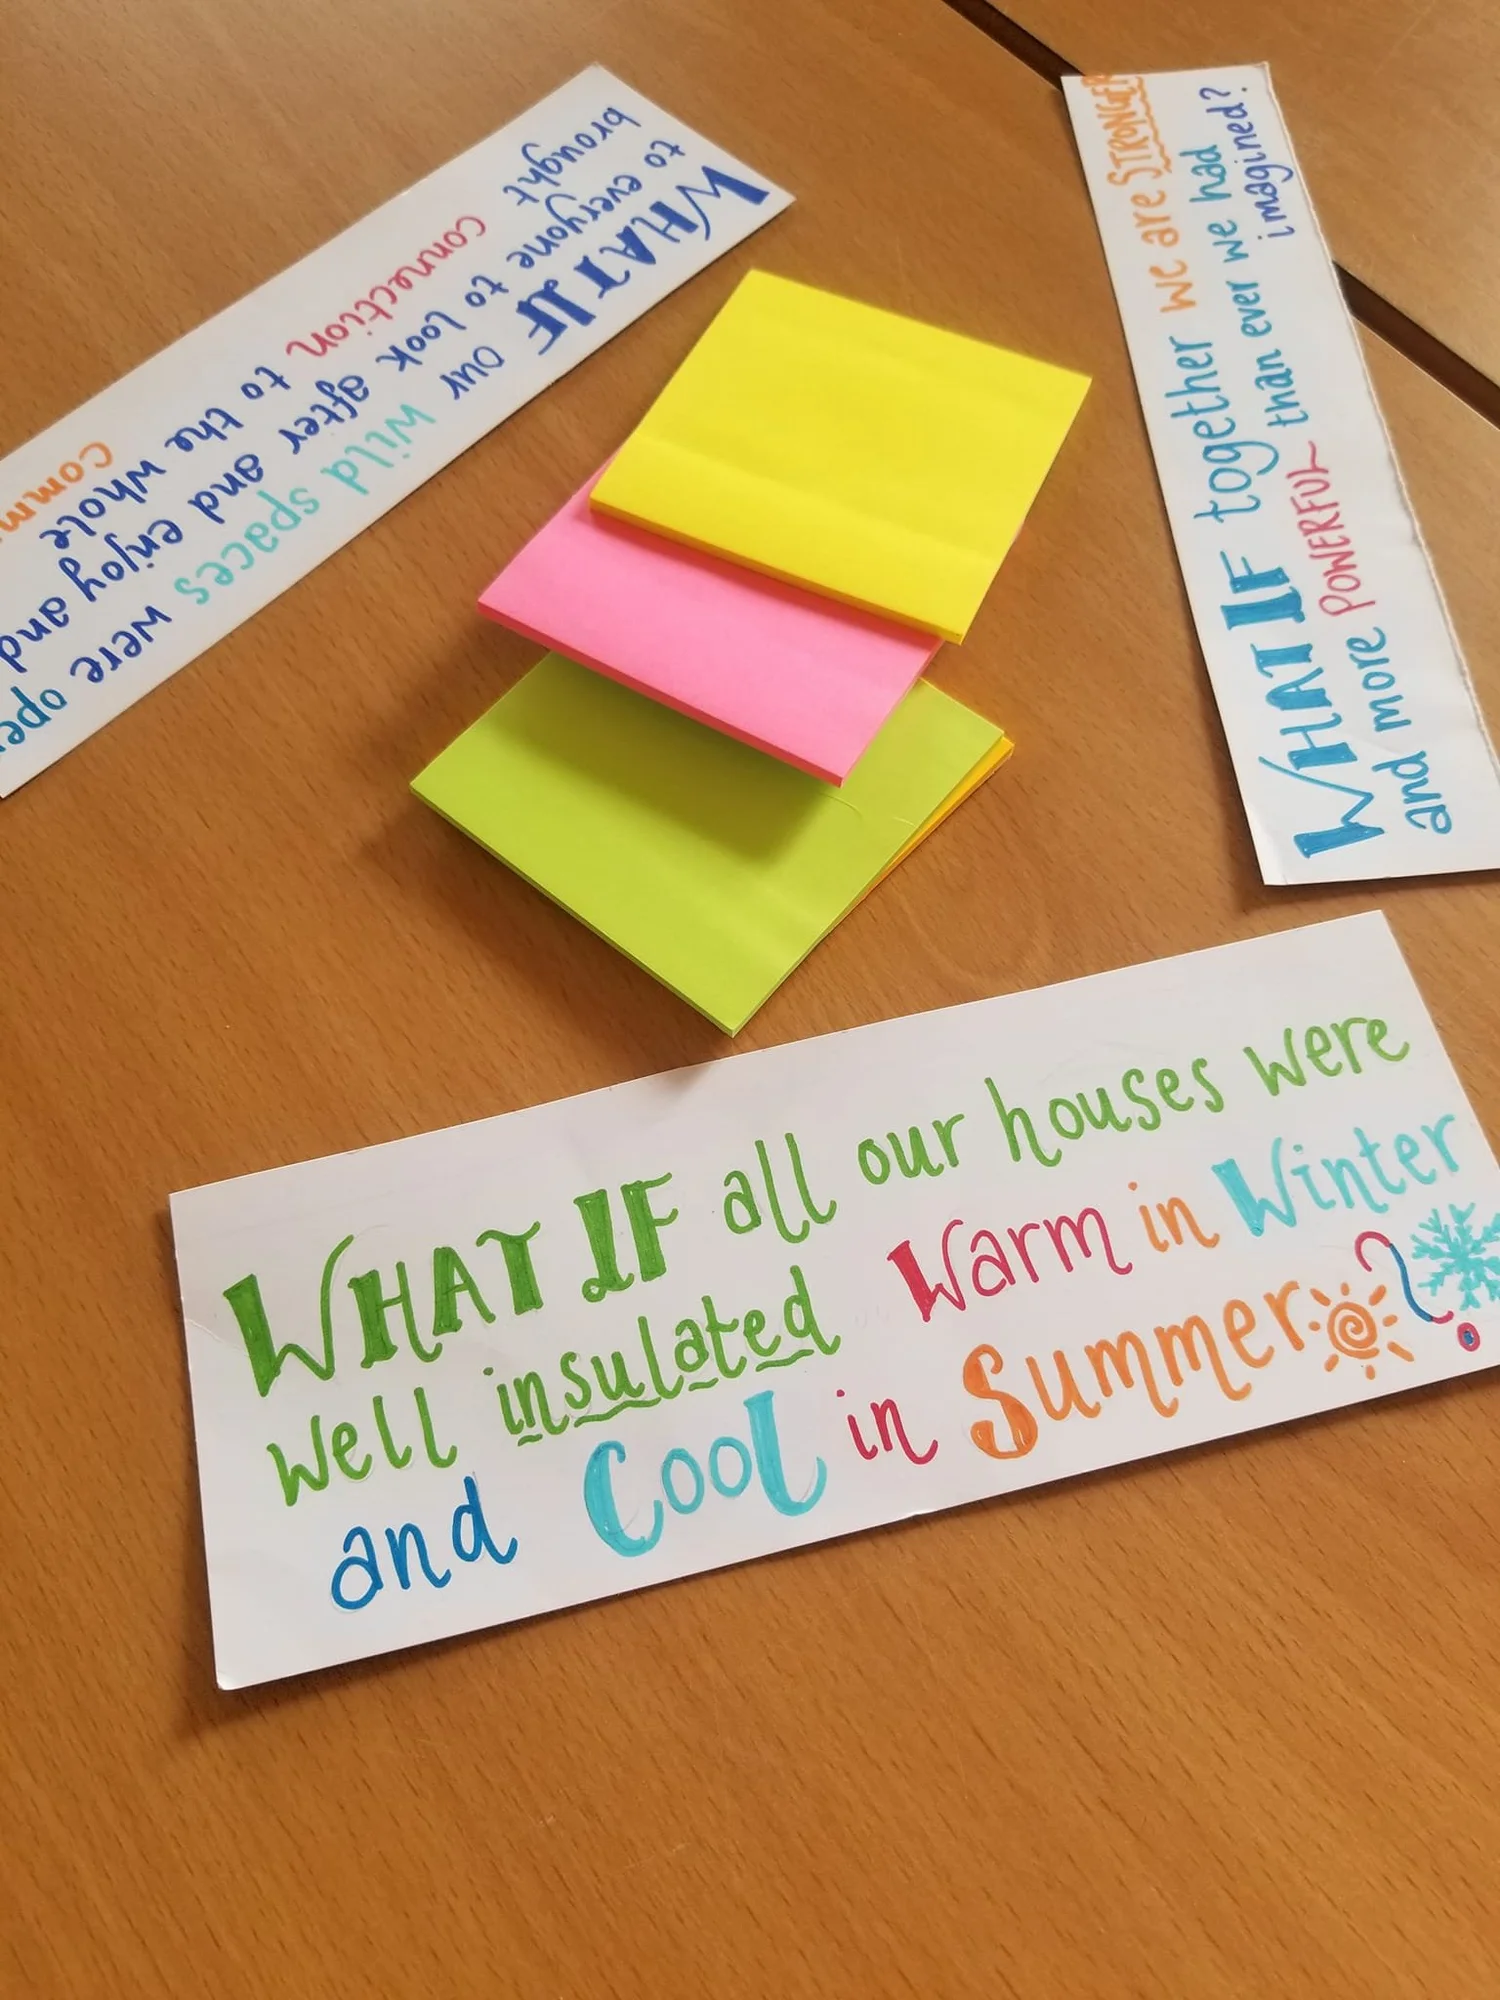 WHAT IF our wild spaces were
to everyone to look after and enjoy and
brought connection to the whole
WHAT IF together we are STRONGER
and more POWERFUL than ever we had
imagined?
WHAT IF all our houses were
well insulated Warm in Winter
and Cool in Summer ?